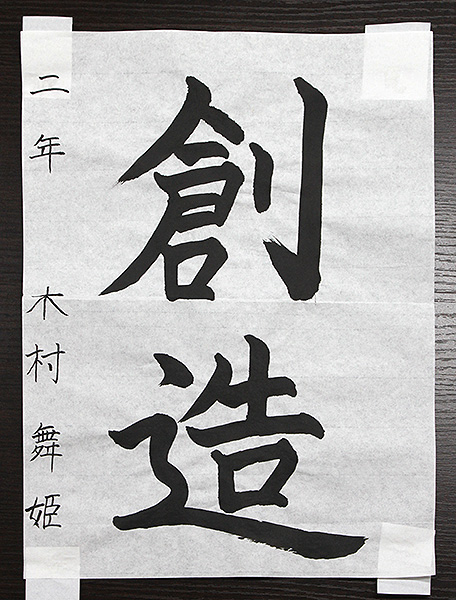 創造
二年 木村舞姫